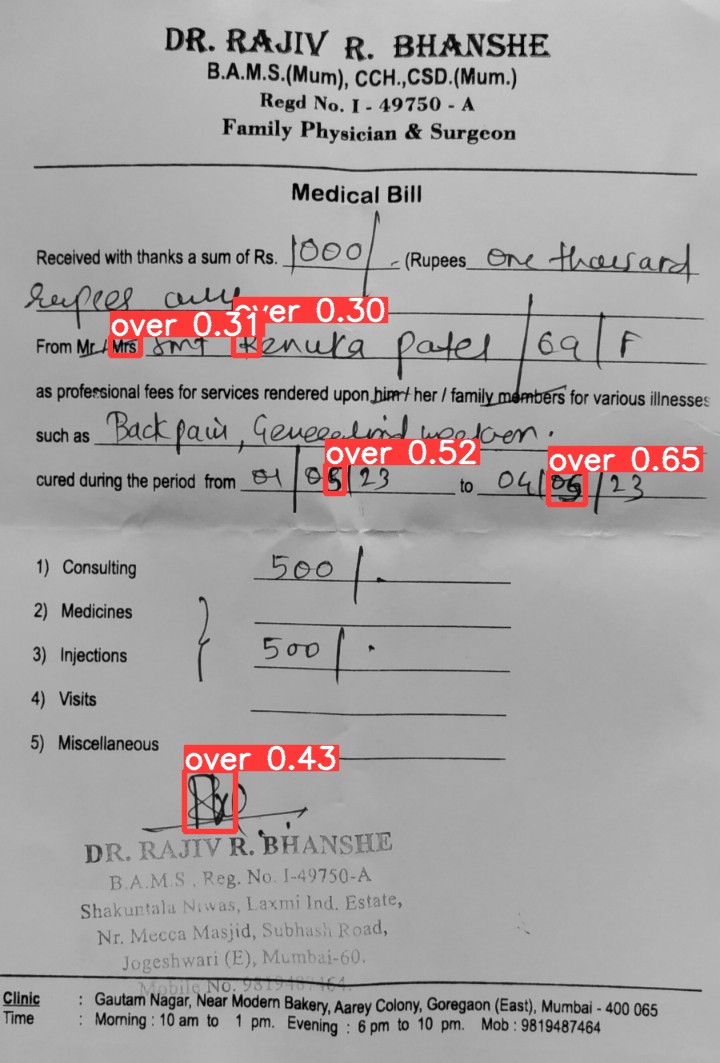 DR. RAJIV R. BHANSHE
B.A.M.S.(Mum), CCH.,CSD.(Mum.)
Regd No. I - 49750 - A
Family Physician & Surgeon
Medical Bill
Received with thanks a sum of Rs. 1000/- (Rupees one thousand
Rupees only
over 0.31 over 0.30
From Mr./ Mrs Smt Renuka Patel / 69 / F
as professional fees for services rendered upon him / her / family members for various illnesses
such as Back pain,
over 0.52 over 0.65
cured during the period from 01/05/23 to 04/05/23
1) Consulting 500/.
2) Medicines
3) Injections 500/.
4) Visits
5) Miscellaneous
over 0.43
DR. RAJIV R. BHANSHE
B.A.M.S., Reg. No. I-49750-A
Shakuntala Niwas, Laxmi Ind. Estate,
Nr. Mecca Masjid, Subhash Road,
Jogeshwari (E), Mumbai-60.
Mobile No. 9819487464.
Clinic : Gautam Nagar, Near Modern Bakery, Aarey Colony, Goregaon (East), Mumbai - 400 065
Time : Morning : 10 am to 1 pm. Evening : 6 pm to 10 pm. Mob : 9819487464